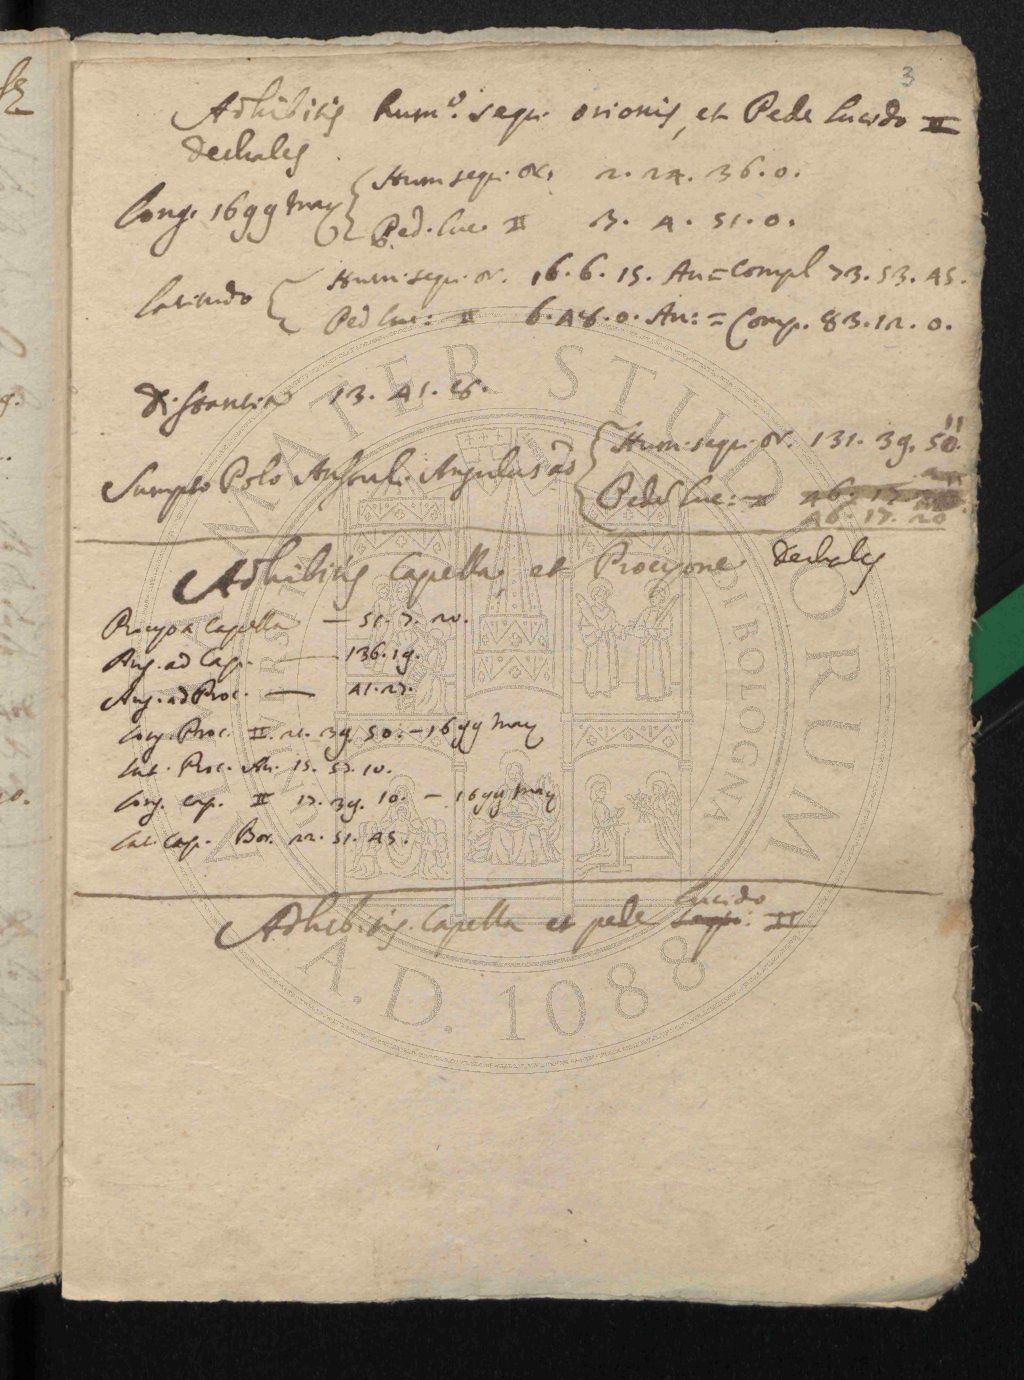 3
Adhibitis hum.o sequ. orionis, et Pede lucido II
Dechales
Long. 1699 May { Hum sequ. or. 2. 24. 36. 0.
Ped. luc. II 3. 4. 51. 0.
latitudo { Hum. sequ. or. 16. 6. 15. Au = Compl 73. 53. 45.
Ped luc: II 6. 48. 0. Au: = Comp. 83. 12. 0.
Distantia 13. 41. 8.
Sumpto Polo Austrul. Angulus ad { Hum. sequ. or. 131. 39. 50''.
Pede luc: II 46. 17. 20
46. 17. 20
Adhibitis Capella, et Procyone Dechales
Procyo a Capella — 51. 7. 20.
Ang. ad Cap. — 136. 19.
Ang. ad Proc. — 41. 27.
Long. Proc. II. 21. 39 50. - 1699 May
Lat. Proc. Au. 15. 57. 10.
Long. Cap. II 17. 39. 10. - 1699 May
Lat. Cap. Bor. 22. 51. 45.
Adhibitis Capella et pede lucido II
ALMA MATER STUDIORUM
A.D. 1088